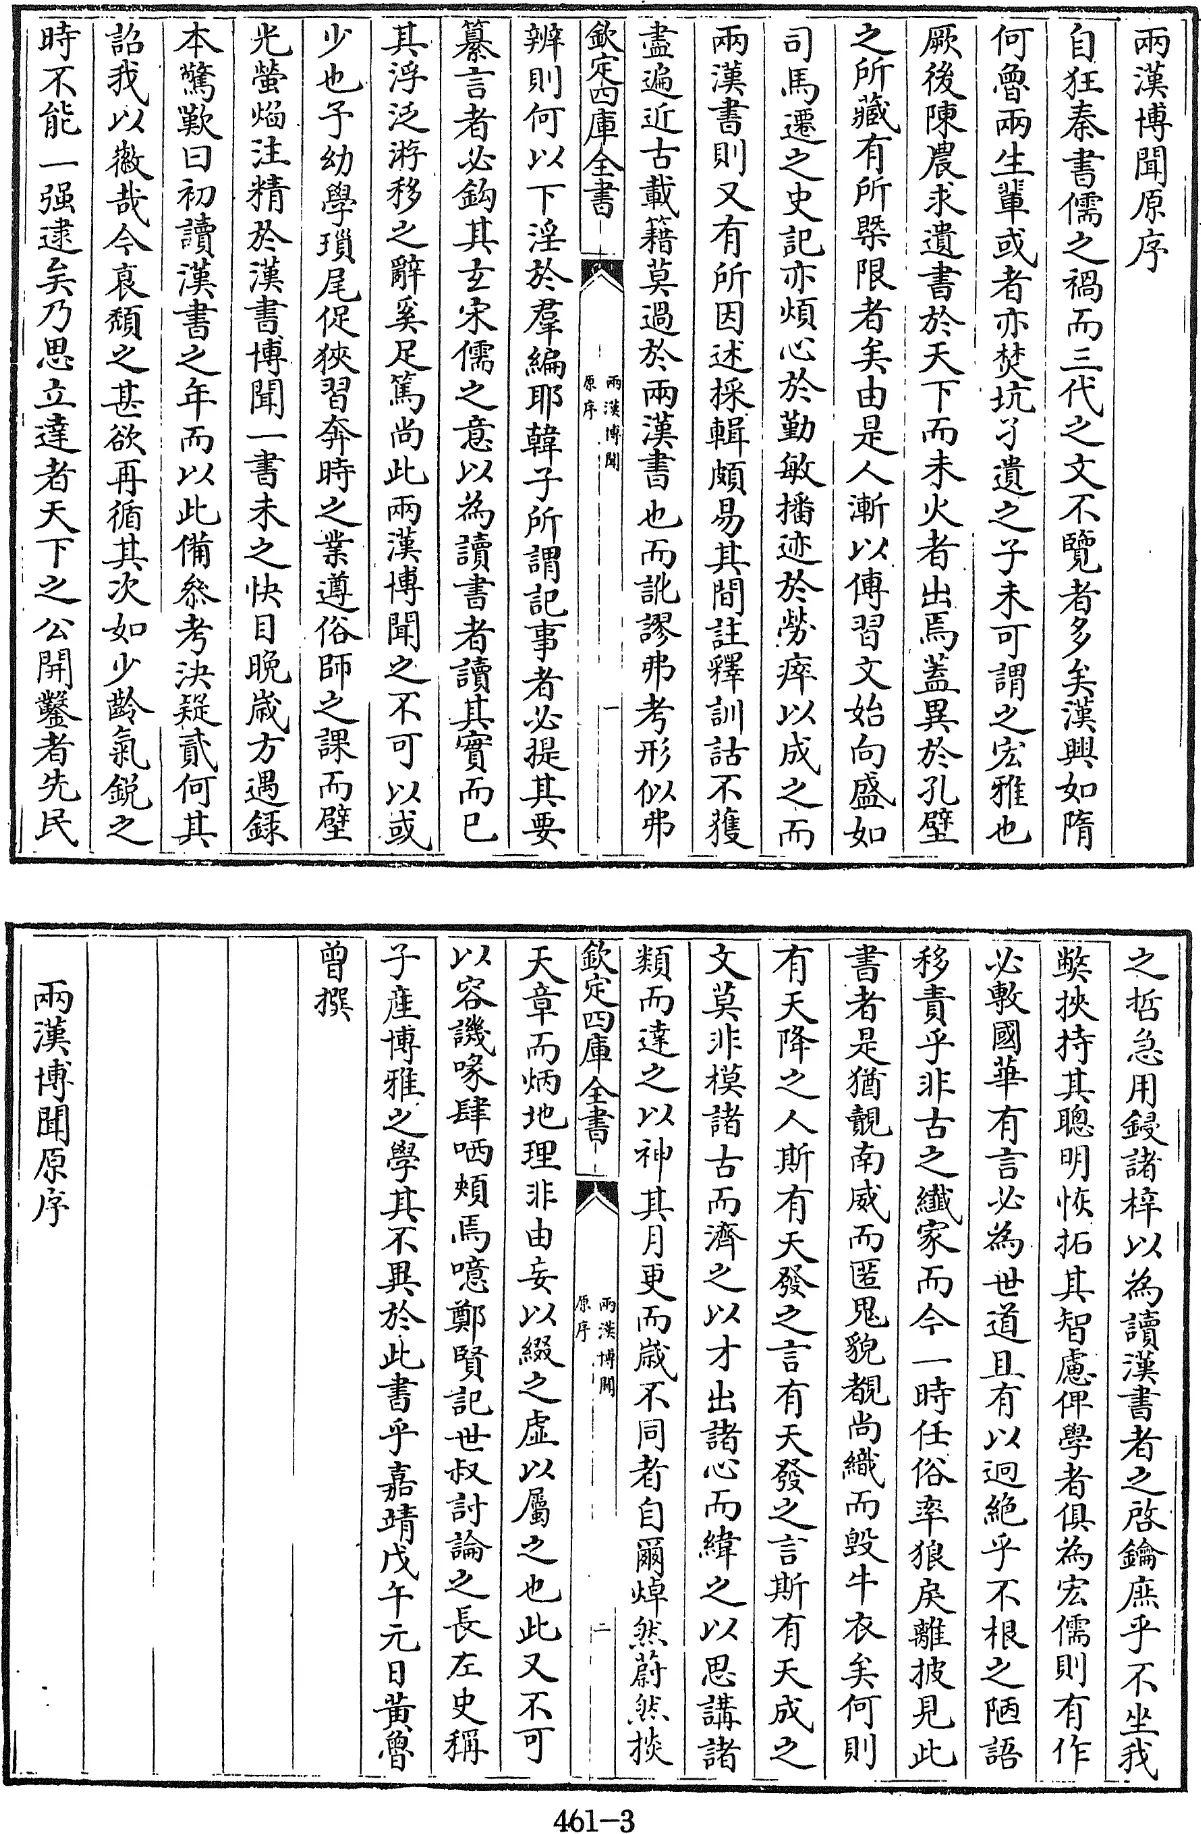 兩漢博聞原序
自狂秦書儒之禍而三代之文不覽者多矣漢興如隋
何魯兩生輩或者亦焚坑孑遺之子未可謂之宏雅也
厥後陳農求遺書於天下而未火者出焉蓋異於孔壁
之所藏有所槩限者矣由是人漸以傳習文始向盛如
司馬遷之史記亦煩心於勤敏播迹於勞瘁以成之而
兩漢書則又有所因述採輯頗易其間註釋訓詁不獲
盡遍近古載籍莫過於兩漢書也而訛謬弗考形似弗
欽定四庫全書
兩漢博聞
原序
一
辨則何以下淫於羣編耶韓子所謂記事者必提其要
纂言者必鈎其玄宋儒之意以為讀書者讀其實而已
其浮泛游移之辭奚足篤尚此兩漢博聞之不可以或
少也予幼學瑣尾促狹習奔時之業遵俗師之課而壁
光螢焰注精於漢書博聞一書未之快目晚歲方遇録
本驚歎曰初讀漢書之年而以此備叅考決疑貳何其
詔我以徽哉今衰頽之甚欲再循其次如少齡氣鋭之
時不能一强逮矣乃思立達者天下之公開鑿者先民
之哲急用鋟諸梓以為讀漢書者之啓鑰庶乎不坐我
獘挾持其聰明恢拓其智慮俾學者俱為宏儒則有作
必敷國華有言必為世道且有以迥絶乎不根之陋語
移責乎非古之纖家而今一時任俗率狼戾離披見此
書者是猶覩南威而匿鬼貌覩尚織而毁牛衣矣何則
有天降之人斯有天發之言有天發之言斯有天成之
文莫非模諸古而濟之以才出諸心而緯之以思講諸
類而達之以神其月更而歲不同者自爾焯然蔚然掞
欽定四庫全書
兩漢博聞
原序
二
天章而炳地理非由妄以綴之虛以屬之也此又不可
以容譏喙肆哂頰焉噫鄭賢記世叔討論之長左史稱
子產博雅之學其不異於此書乎嘉靖戊午元日黃魯
曾撰
兩漢博聞原序
461-3